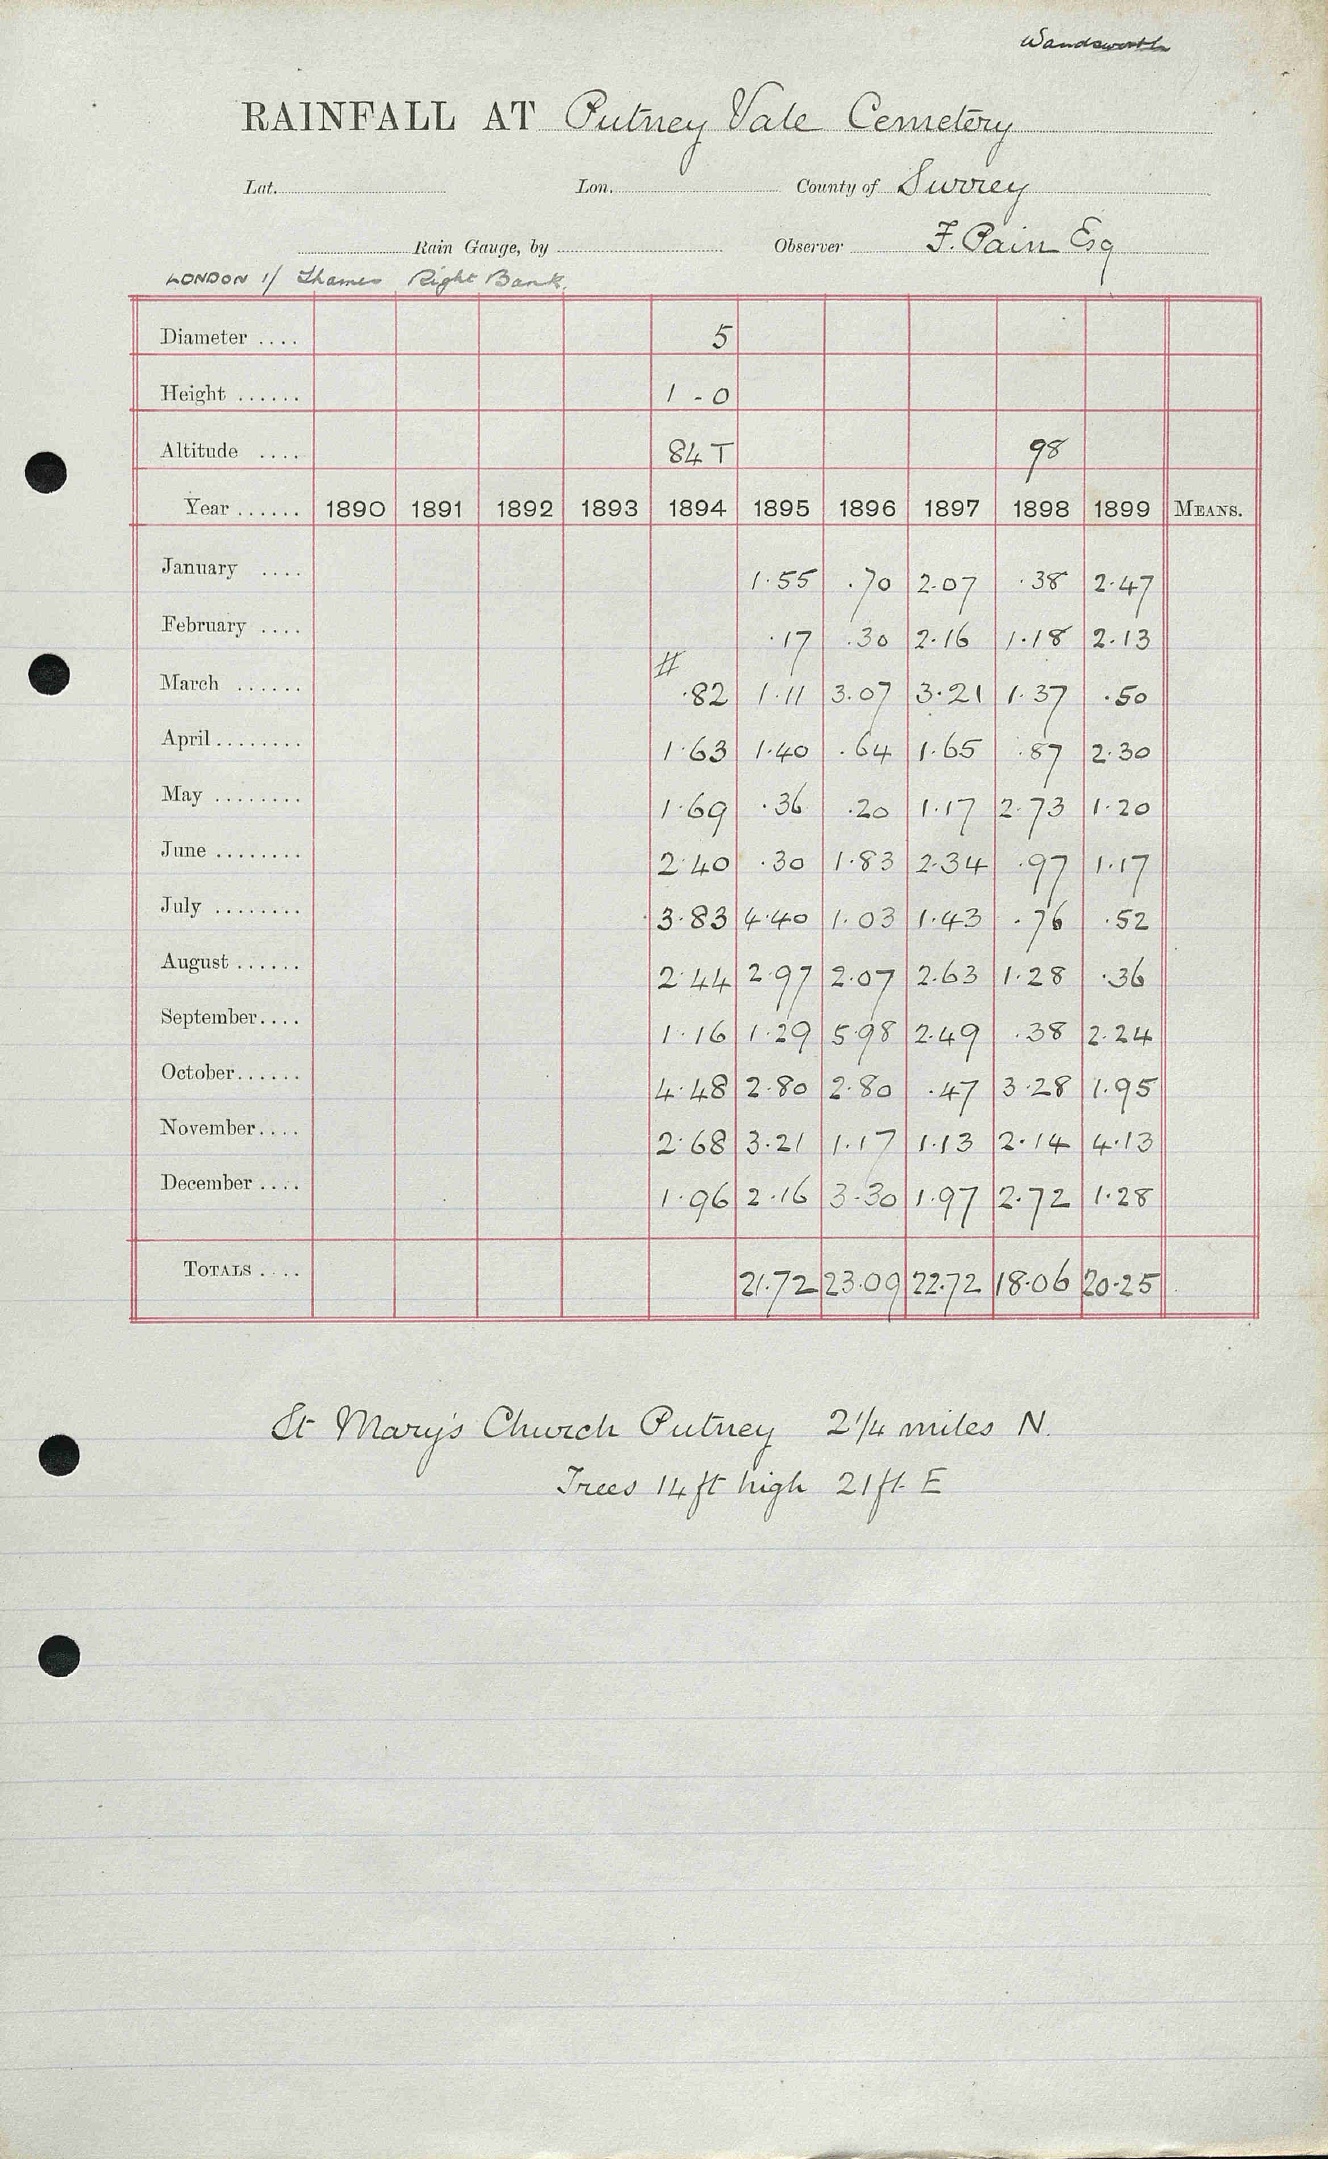 Wandsworth
RAINFALL AT Putney Vale Cemetery
Lat. Lon. County of Surrey
Rain Gauge, by Observer F. Pain Esq
LONDON 1/ Thames Right Bank.
Diameter .... 5
Height ...... 1 - 0
Altitude .... 84 T 98
Year ...... 1890 1891 1892 1893 1894 1895 1896 1897 1898 1899 MEANS.
January .... 1.55 .70 2.07 .38 2.47
February .... .17 .30 2.16 1.18 2.13
March ...... # .82 1.11 3.07 3.21 1.37 .50
April ........ 1.63 1.40 .64 1.65 .87 2.30
May ........ 1.69 .36 .20 1.17 2.73 1.20
June ........ 2.40 .30 1.83 2.34 .97 1.17
July ........ 3.83 4.40 1.03 1.43 .76 .52
August ...... 2.44 2.97 2.07 2.63 1.28 .36
September .... 1.16 1.29 5.98 2.49 .38 2.24
October ...... 4.48 2.80 2.80 .47 3.28 1.95
November .... 2.68 3.21 1.17 1.13 2.14 4.13
December .... 1.96 2.16 3.30 1.97 2.72 1.28
TOTALS .... 21.72 23.09 22.72 18.06 20.25
St Mary's Church Putney 2 1/4 miles N.
Trees 14 ft high 21 ft. E